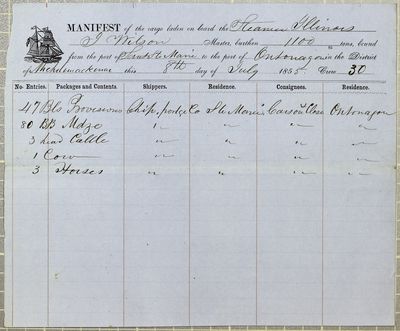 MANIFEST of the cargo laden on board the Steamer Illinois
J Wilson Master, burthen 1100 tons, bound
from the port of Sault Ste Marie to the port of Ontonagon in the District
of Michilimackinac this 8th day of July 1855. Crew 30
No Entries. Packages and Contents. Shippers. Residence. Consignees. Residence.
47 Bls Provisions Chip. portge Co Ste Marie Carson Close Ontonagon
80 BB Mdze " " " "
3 head Cattle " " " "
1 Cow " " " "
3 Horses " " " "